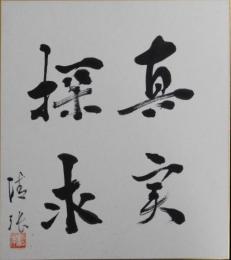 真実
探求